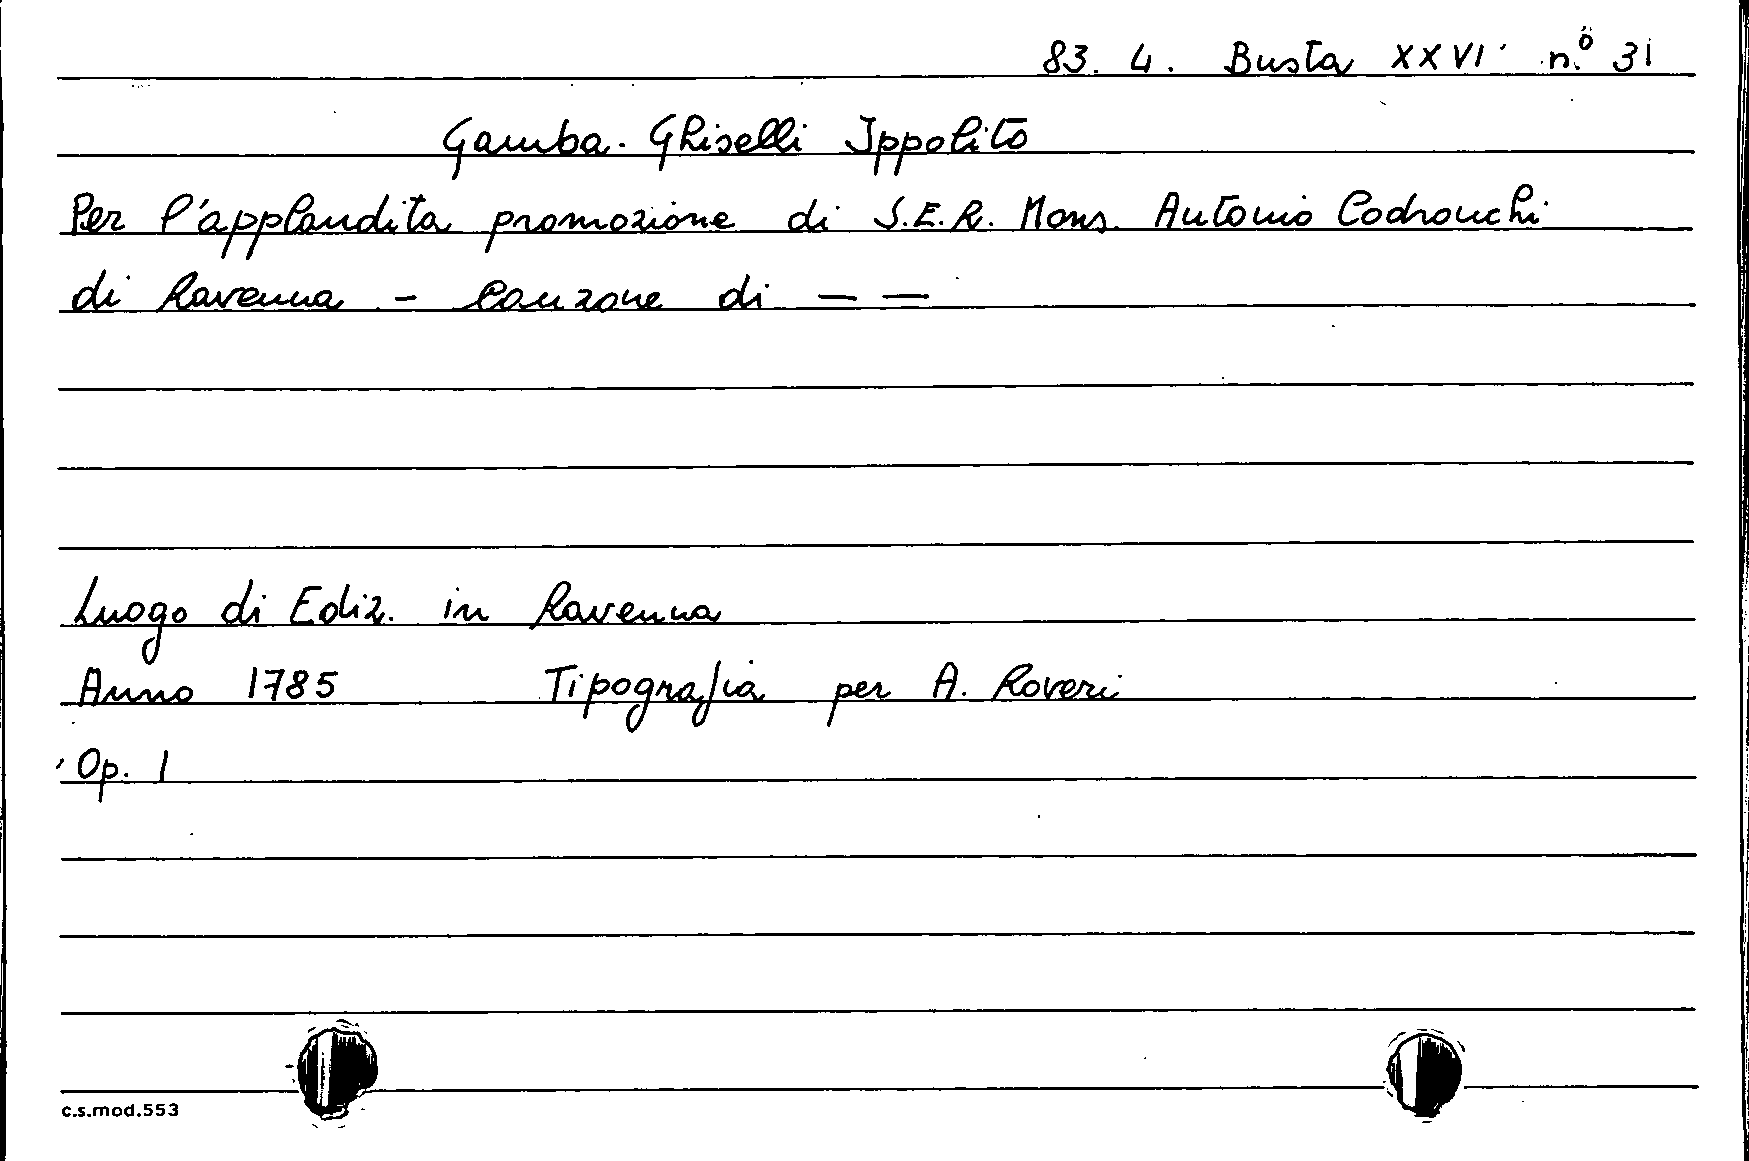 83. 4. Busta XXVI n.º 31
Gamba-Ghiselli Ippolito
Per l'applaudita promozione di S.E.R. Mons. Antonio Codronchi
di Ravenna - Canzone di — —
Luogo di Ediz. in Ravenna
Anno 1785 Tipografia per A. Roveri
Op. 1
c.s.mod.553